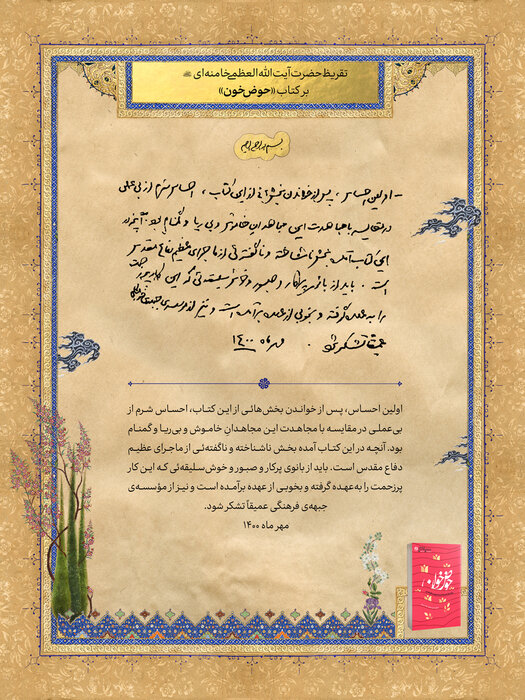 تقریظ حضرت آیت الله العظمی خامنه‌ای
بر کتاب «حوض خون»
بسم الله الرحمن الرحیم
- اولین احساس، پس از خواندن بخشهائی از این کتاب، احساس شرم از بی‌عملی
در مقایسه با مجاهدت این مجاهدان خاموش و بی‌ریا و گمنام بود. آنچه در
این کتاب آمده بخش ناشناخته و ناگفته‌ئی از ماجرای عظیم دفاع مقدس
است. باید از بانوی پرکار و صبور و خوش سلیقه‌ئی که این کار پرزحمت
را به عهده گرفته و بخوبی از عهده برآمده است و نیز از مؤسسه‌ی جبهه‌ی فرهنگی
عمیقاً تشکر شود. مهر ماه ۱۴۰۰
اولین احساس، پس از خواندن بخش‌هائی از این کتاب، احساس شرم از
بی‌عملی در مقایسه با مجاهدت این مجاهدانِ خاموش و بی‌ریا و گمنام
بود. آنچه در این کتاب آمده بخش ناشناخته و ناگفته‌ئی از ماجرای عظیم
دفاع مقدس است. باید از بانوی پرکار و صبور و خوش‌سلیقه‌ئی که این کار
پرزحمت را به‌عهده گرفته و بخوبی از عهده برآمده است و نیز از مؤسسه‌ی
جبهه‌ی فرهنگی عمیقاً تشکر شود.
مهر ماه ۱۴۰۰
حوض خون